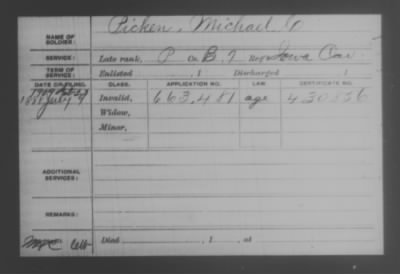 NAME OF SOLDIER: Picken, Michael
SERVICE: Late rank, P Co. B, 9 Reg't Iowa Cav.
TERM OF SERVICE: Enlisted , 1 Discharged , 1
DATE OF FILING. CLASS. APPLICATION NO. LAW. CERTIFICATE NO.
1888 July 9 Invalid, 663,481 age 430856
Widow,
Minor,
ADDITIONAL SERVICES:
REMARKS:
Died , 1 , at